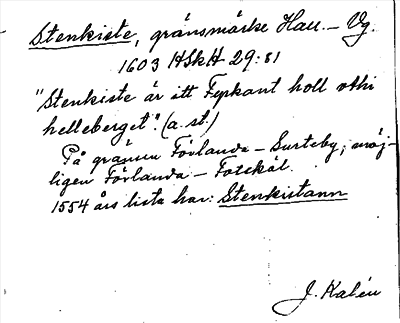 Stenkiste, gränsmärke Hall. – Vg.
1603 HSkH 29:81
"Stenkiste är itt Fyrkant holl uthi
helleberget". (a. st.)
På gränsen Förlanda – Surteby; möj-
ligen Förlanda – Fotskäl.
1554 års lista har: Stenkistann
J. Kalén